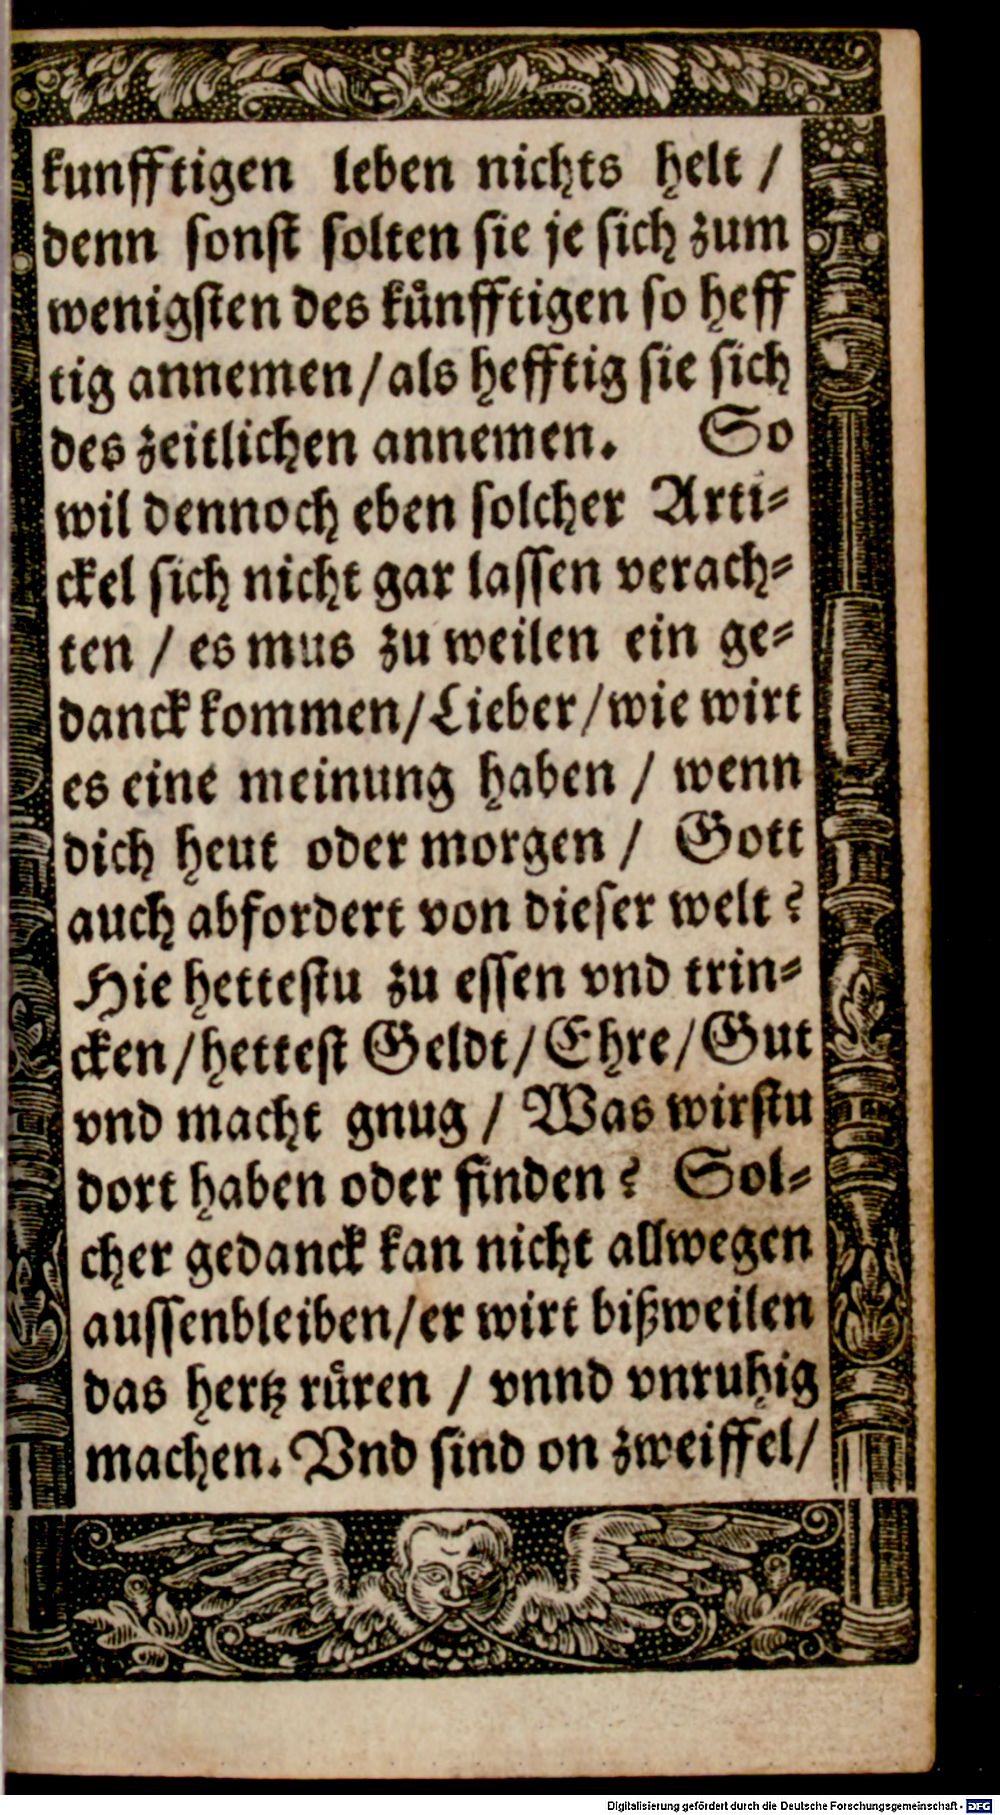 kunfftigen leben nichts helt /
denn sonst solten sie je sich zum
wenigsten des kuͤnfftigen so heff
tig annemen / als hefftig sie sich
des zeitlichen annemen. So
wil dennoch eben solcher Arti-
ckel sich nicht gar lassen verach-
ten / es mus zu weilen ein ge-
danck kommen / Lieber / wie wirt
es eine meinung haben / wenn
dich heut oder morgen / Gott
auch abfordert von dieser welt?
Hie hettestu zu essen vnd trin-
cken / hettest Geldt / Ehre / Gut
vnd macht gnug / Was wirstu
dort haben oder finden? Sol-
cher gedanck kan nicht allwegen
aussenbleiben / er wirt bißweilen
das hertz ruͤren / vnnd vnruhig
machen. Vnd sind on zweiffel /
Digitalisierung gefördert durch die Deutsche Forschungsgemeinschaft - DFG